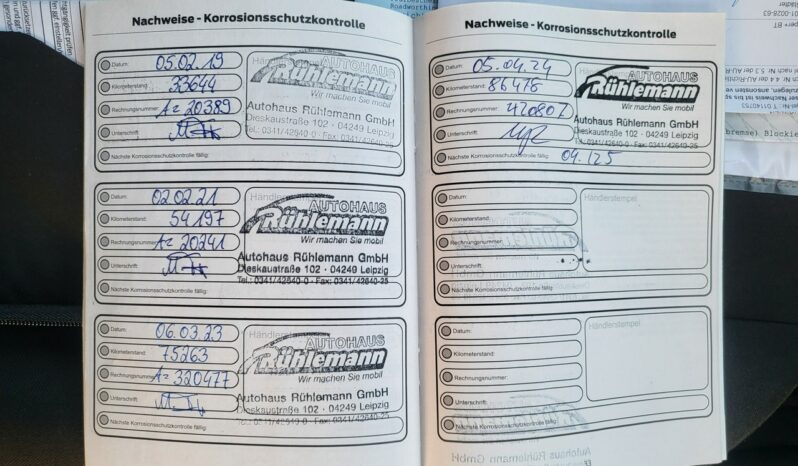 Nachweise - Korrosionsschutzkontrolle
Datum: 05.02.19
Kilometerstand: 33644
Rechnungsnummer: A= 20389
Unterschrift:
Nächste Korrosionsschutzkontrolle fällig:
Händlerstempel
AUTOHAUS
Rühlemann
Wir machen Sie mobil
Autohaus Rühlemann GmbH
Dieskaustraße 102 · 04249 Leipzig
Tel.: 0341/42640-0 · Fax: 0341/42640-25
Datum: 02.02.21
Kilometerstand: 54197
Rechnungsnummer: A= 20241
Unterschrift:
Nächste Korrosionsschutzkontrolle fällig:
Händlerstempel
AUTOHAUS
Rühlemann
Wir machen Sie mobil
Autohaus Rühlemann GmbH
Dieskaustraße 102 · 04249 Leipzig
Tel.: 0341/42640-0 · Fax: 0341/42640-25
Datum: 06.03.23
Kilometerstand: 75263
Rechnungsnummer: A= 320477
Unterschrift:
Nächste Korrosionsschutzkontrolle fällig:
Händlerstempel
AUTOHAUS
Rühlemann
Wir machen Sie mobil
Autohaus Rühlemann GmbH
Dieskaustraße 102 · 04249 Leipzig
Tel.: 0341/42640-0 · Fax: 0341/42640-25
Nachweise - Korrosionsschutzkontrolle
Datum: 05.04.24
Kilometerstand: 86478
Rechnungsnummer: 420807
Unterschrift:
Nächste Korrosionsschutzkontrolle fällig: 04.125
AUTOHAUS
Rühlemann
Wir machen Sie mobil
Autohaus Rühlemann GmbH
Dieskaustraße 102 · 04249 Leipzig
Tel.: 0341/42640-0 · Fax: 0341/42640-25
Datum:
Kilometerstand:
Rechnungsnummer:
Unterschrift:
Nächste Korrosionsschutzkontrolle fällig:
Händlerstempel
Datum:
Kilometerstand:
Rechnungsnummer:
Unterschrift:
Nächste Korrosionsschutzkontrolle fällig:
Händlerstempel